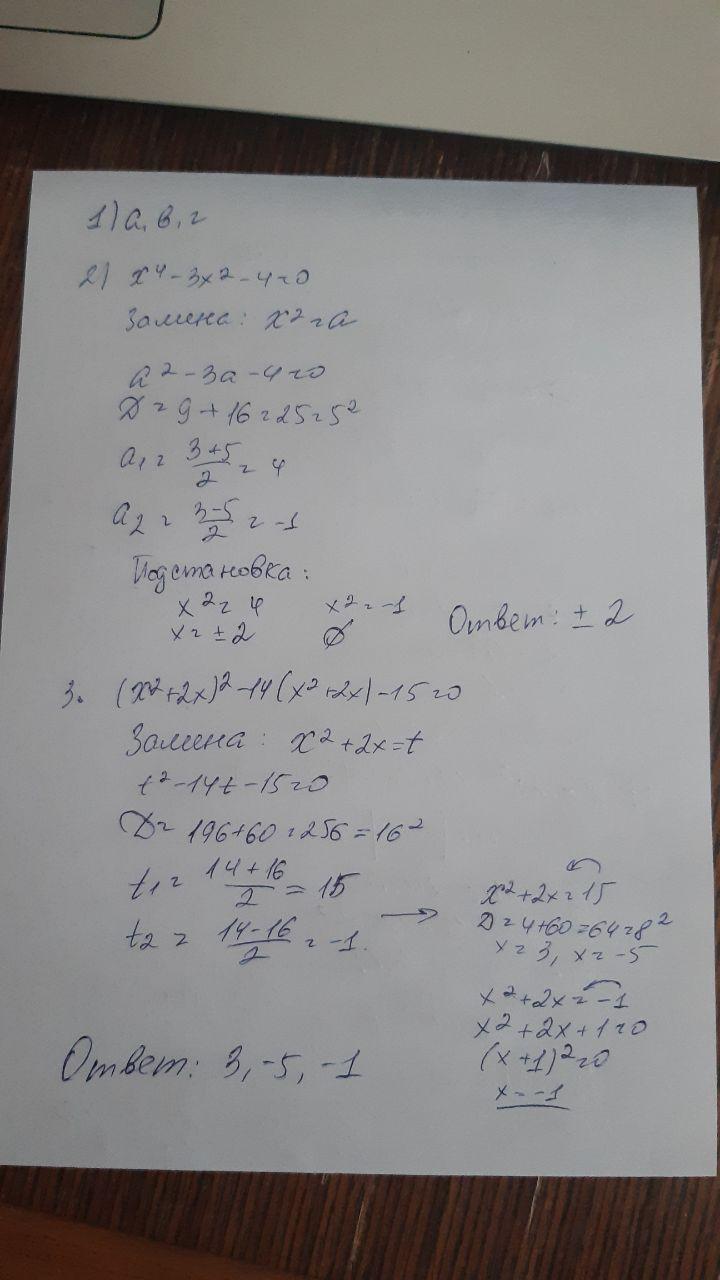 1) а, в, г
2) x⁴ - 3x² - 4 = 0
Замена: x² = a
a² - 3a - 4 = 0
D = 9 + 16 = 25 = 5²
a₁ = (3+5)/2 = 4
a₂ = (3-5)/2 = -1
Подстановка:
x² = 4 x² = -1
x = ± 2 ∅
Ответ: ± 2
3. (x²+2x)² - 14(x²+2x) - 15 = 0
Замена: x² + 2x = t
t² - 14t - 15 = 0
D = 196 + 60 = 256 = 16²
t₁ = (14+16)/2 = 15
t₂ = (14-16)/2 = -1 →
x² + 2x = 15
D = 4 + 60 = 64 = 8²
x = 3, x = -5
x² + 2x = -1
x² + 2x + 1 = 0
(x+1)² = 0
x = -1
Ответ: 3, -5, -1